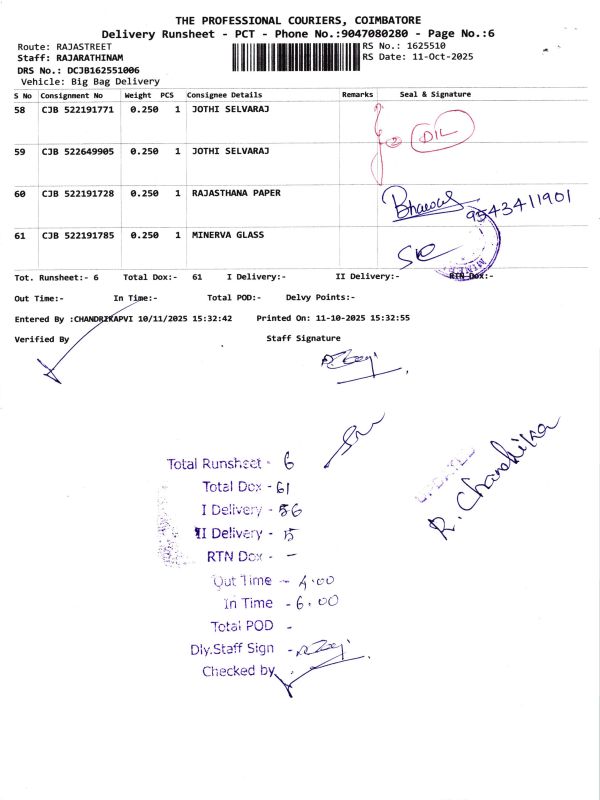 THE PROFESSIONAL COURIERS, COIMBATORE
Delivery Runsheet - PCT - Phone No.:9047080280 - Page No.:6
Route: RAJASTREET
RS No.: 1625510
Staff: RAJARATHINAM
RS Date: 11-Oct-2025
DRS No.: DCJB162551006
Vehicle: Big Bag Delivery
S No Consignment No Weight PCS Consignee Details Remarks Seal & Signature
58 CJB 522191771 0.250 1 JOTHI SELVARAJ
DIL
59 CJB 522649905 0.250 1 JOTHI SELVARAJ
60 CJB 522191728 0.250 1 RAJASTHANA PAPER
9543411901
61 CJB 522191785 0.250 1 MINERVA GLASS
Tot. Runsheet:- 6 Total Dox:- 61 I Delivery:- II Delivery:- RTN Dox:-
Out Time:- In Time:- Total POD:- Delvy Points:-
Entered By :CHANDRIKAPVI 10/11/2025 15:32:42 Printed On: 11-10-2025 15:32:55
Verified By Staff Signature
UPDATED
R. Chandrika
Total Runsheet - 6
Total Dox - 61
I Delivery - 56
II Delivery - 15
RTN Dox - -
Out Time - 4.00
In Time - 6.00
Total POD -
Dly.Staff Sign -
Checked by